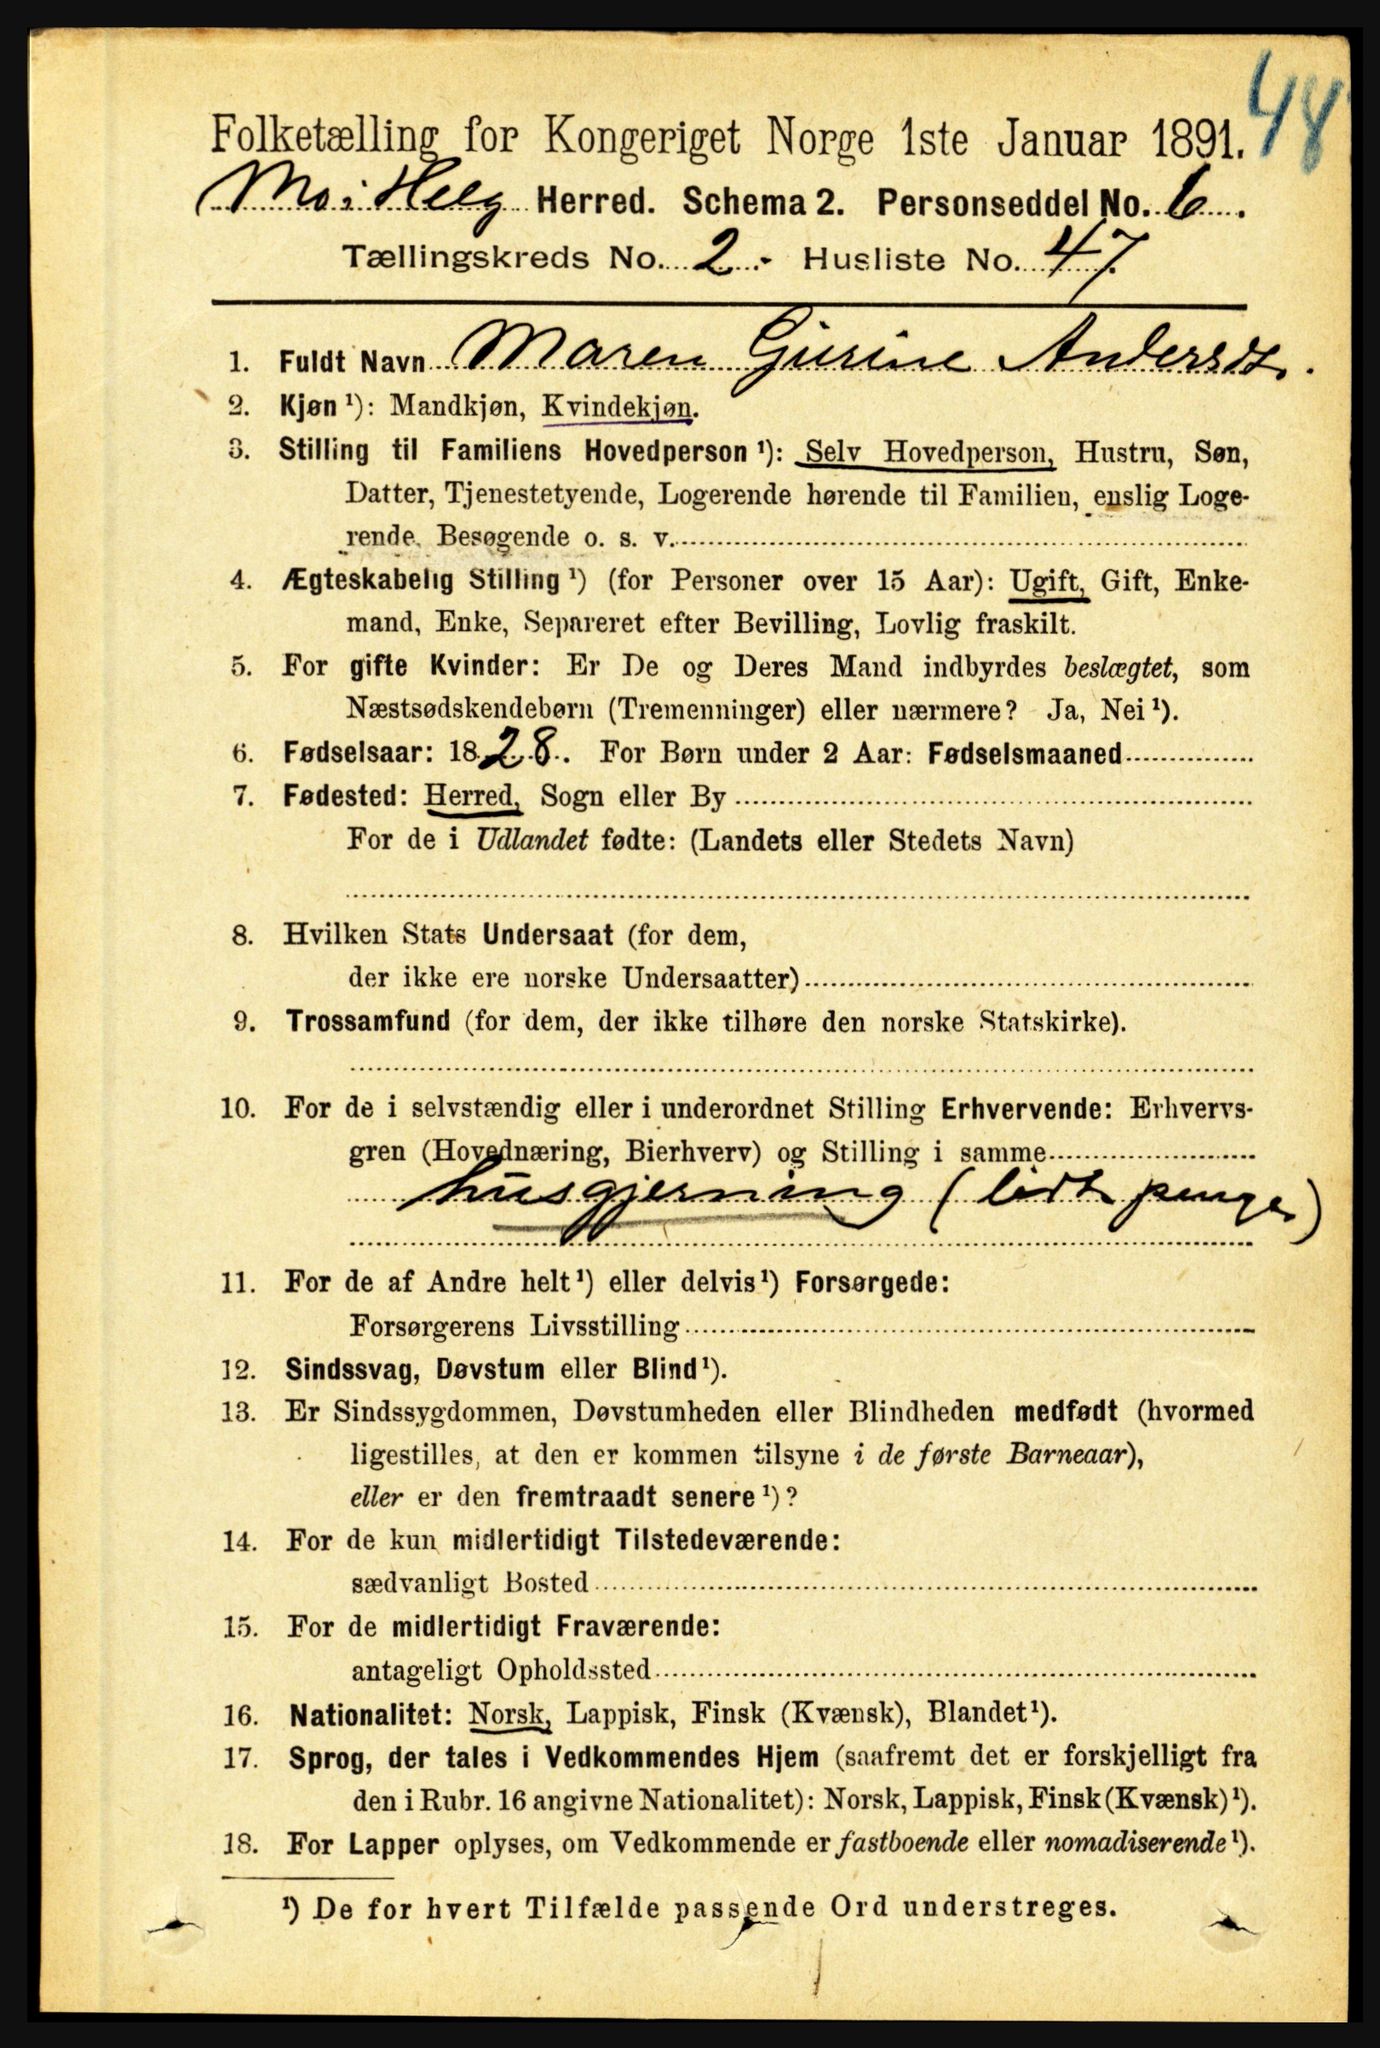 48
Folketælling for Kongeriget Norge 1ste Januar 1891.
Mo i Helg Herred. Schema 2. Personseddel No. 6.
Tællingskreds No. 2. - Husliste No. 47.
1. Fuldt Navn Maren Gurine Andersdt.
2. Kjøn ¹): Mandkjøn, Kvindekjøn.
3. Stilling til Familiens Hovedperson ¹): Selv Hovedperson, Hustru, Søn,
Datter, Tjenestetyende, Logerende hørende til Familien, enslig Loge-
rende, Besøgende o. s. v.
4. Ægteskabelig Stilling ¹) (for Personer over 15 Aar): Ugift, Gift, Enke-
mand, Enke, Separeret efter Bevilling, Lovlig fraskilt.
5. For gifte Kvinder: Er De og Deres Mand indbyrdes beslægtet, som
Næstsødskendebørn (Tremenninger) eller nærmere? Ja, Nei ¹).
6. Fødselsaar: 1828. For Børn under 2 Aar: Fødselsmaaned
7. Fødested: Herred, Sogn eller By
For de i Udlandet fødte: (Landets eller Stedets Navn)
8. Hvilken Stats Undersaat (for dem,
der ikke ere norske Undersaatter)
9. Trossamfund (for dem, der ikke tilhøre den norske Statskirke).
10. For de i selvstændig eller i underordnet Stilling Erhvervende: Erhvervs-
gren (Hovednæring, Bierhverv) og Stilling i samme
husgjerning (lidt penge)
11. For de af Andre helt ¹) eller delvis ¹) Forsørgede:
Forsørgerens Livsstilling
12. Sindssvag, Døvstum eller Blind ¹).
13. Er Sindssygdommen, Døvstumheden eller Blindheden medfødt (hvormed
ligestilles, at den er kommen tilsyne i de første Barneaar),
eller er den fremtraadt senere ¹)?
14. For de kun midlertidigt Tilstedeværende:
sædvanligt Bosted
15. For de midlertidigt Fraværende:
antageligt Opholdssted
16. Nationalitet: Norsk, Lappisk, Finsk (Kvænsk), Blandet ¹).
17. Sprog, der tales i Vedkommendes Hjem (saafremt det er forskjelligt fra
den i Rubr. 16 angivne Nationalitet): Norsk, Lappisk, Finsk (Kvænsk) ¹).
18. For Lapper oplyses, om Vedkommende er fastboende eller nomadiserende ¹).
¹) De for hvert Tilfælde passende Ord understreges.